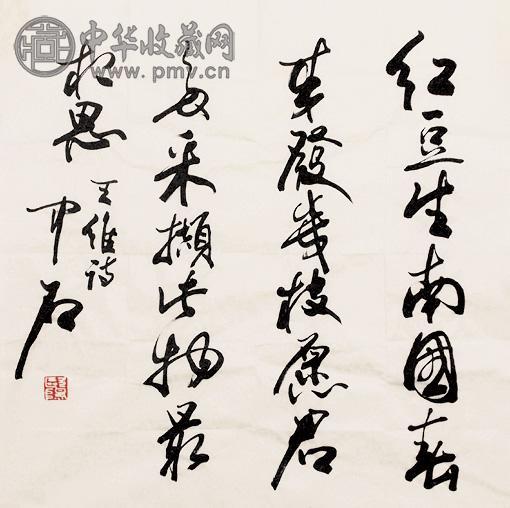 红豆生南國春
来發幾枝愿君
多采擷此物最
相思
王维诗
中石
中华收藏网
www.pmv.cn